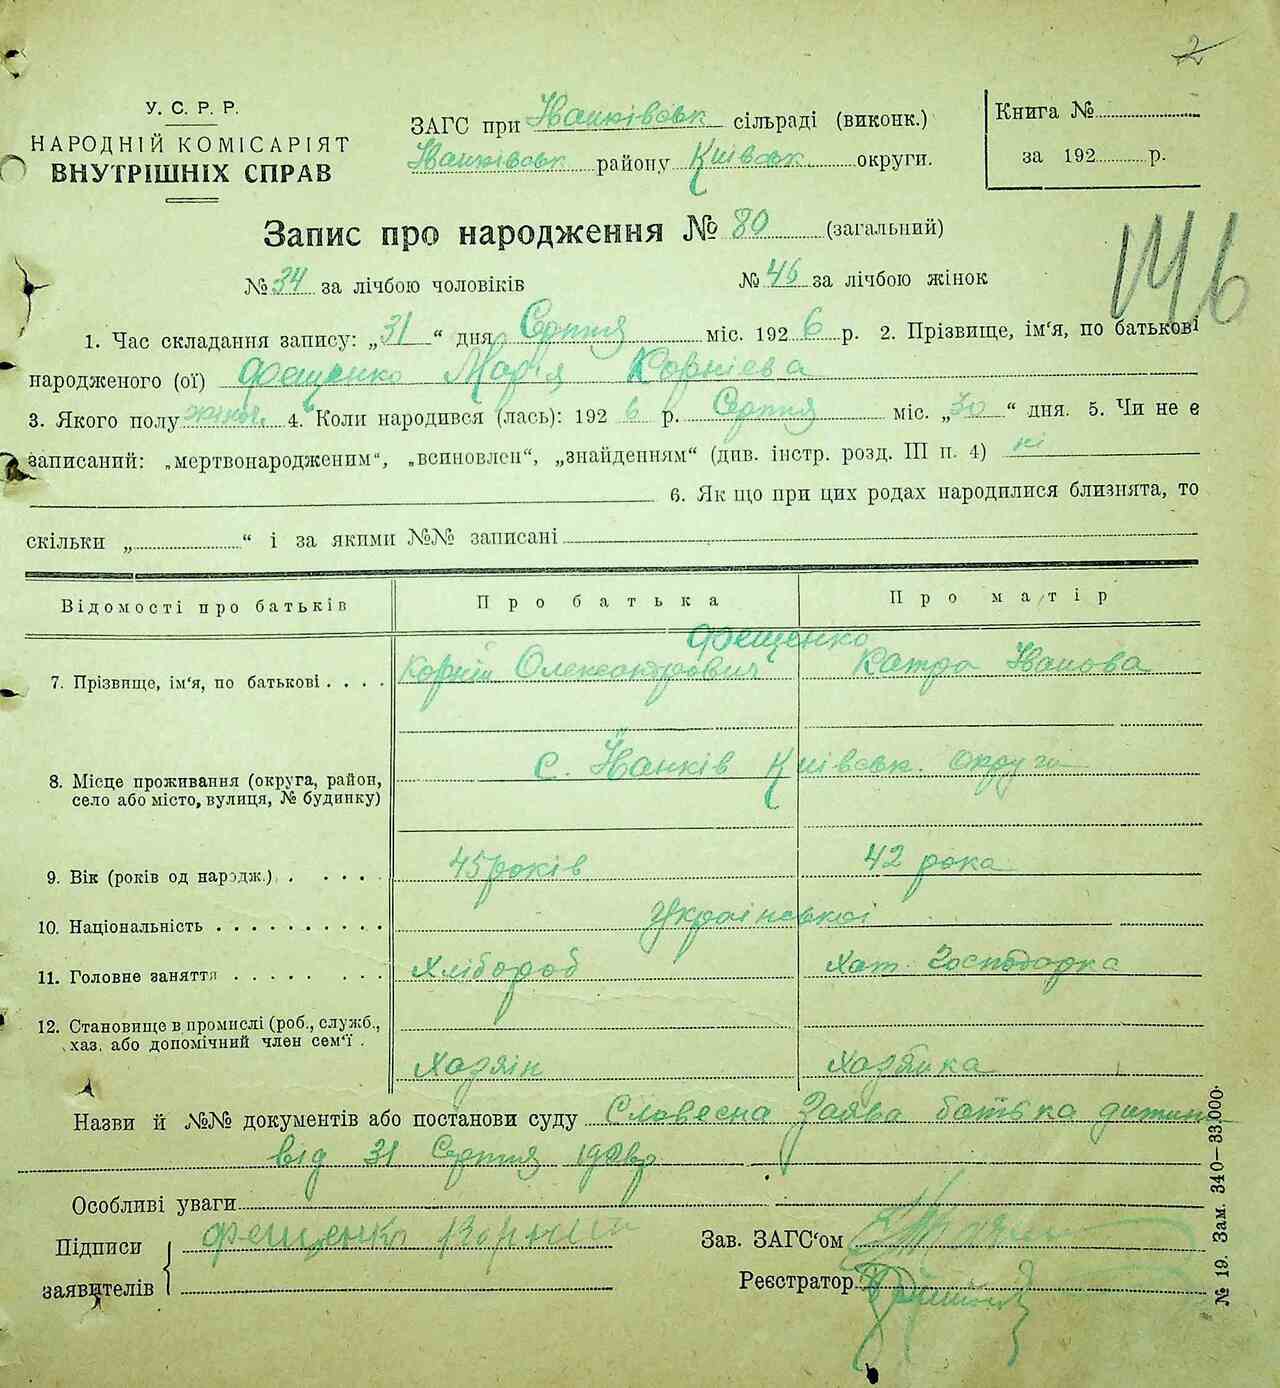 2
У. С. Р. Р.
НАРОДНІЙ КОМІСАРІЯТ
ВНУТРІШНІХ СПРАВ
ЗАГС при Іванківськ сільраді (виконк.)
Іванківськ району Київськ округи.
Книга №
за 192 р.
Запис про народження № 80 (загальний)
№ 34 за лічбою чоловіків № 46 за лічбою жінок
146
1. Час складання запису: „31“ дня Серпня міс. 1926 р. 2. Прізвище, ім‘я, по батькові
народженого (ої) Фещенко Марія Корніева
3. Якого полу жіноч. 4. Коли народився (лась): 1926 р. Серпня міс. „30“ дня. 5. Чи не є
записаний: „мертвонародженим“, „всиновлен“, „знайденням“ (див. інстр. розд. III п. 4) ні
6. Як що при цих родах народилися близнята, то
скільки „ “ і за якими №№ записані
Відомості про батьків Про батька Про матір
Фещенко
7. Прізвище, ім‘я, по батькові . . . . Корній Олександрович Катря Іванова
8. Місце проживання (округа, район,
село або місто, вулиця, № будинку)
с. Іванків Київськ. округи
9. Вік (років од народж.) . . . . . 45 років 42 рока
10. Національність . . . . . . . . . . Української
11. Головне заняття . . . . . . . Хлібороб Хат. Господарка
12. Становище в промислі (роб., служб.,
хаз. або допомічний член сем‘ї .
Хазяїн Хазяйка
Назви й №№ документів або постанови суду Словесна Заява батька дитини
від 31 Серпня 1926р
Особливі уваги
Підписи
заявителів
Фещенко Корній
Зав. ЗАГС‘ом
Реєстратор
№ 19. Зам. 340—33.000.